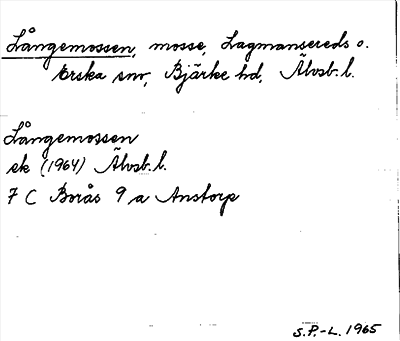 Långemossen, mosse, Lagmansereds o.
Erska snr, Bjärke hd, Älvsb. l.
Långemossen
ek (1964) Älvsb. l.
7 C Borås 9 a Anstorp
S.P.-L. 1965